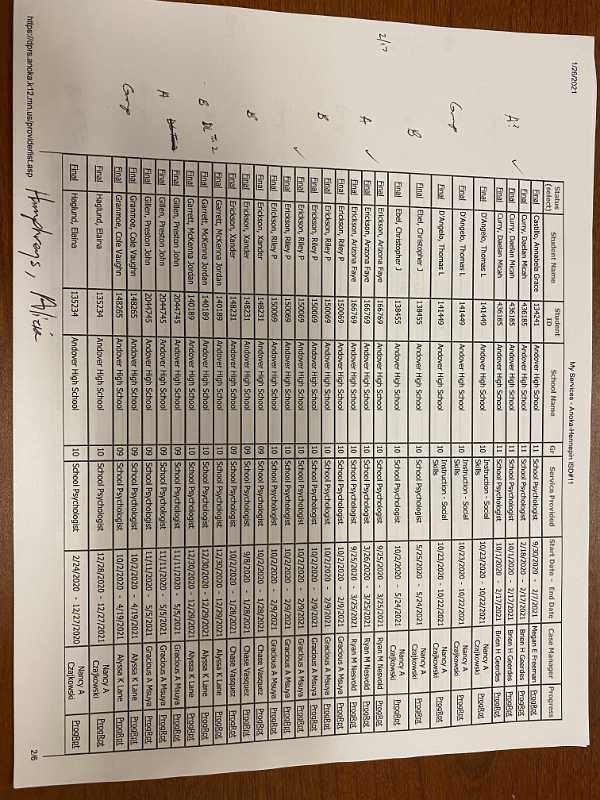 1/26/2021
My Services - Anoka-Hennepin ISD#11
Status (select) Student Name Student ID School Name Gr Service Provided Start Date - End Date Case Manager Progress
Final Castillo, Annabela Grace 134241 Andover High School 11 School Psychologist 9/30/2020 - 2/7/2021 Megan E Freeman ProgRpt
Final Curry, Daelan Micah 436185 Andover High School 11 School Psychologist 2/18/2020 - 2/17/2021 Brian H Geerdes ProgRpt
Final Curry, Daelan Micah 436185 Andover High School 11 School Psychologist 10/1/2020 - 2/17/2021 Brian H Geerdes ProgRpt
Final Curry, Daelan Micah 436185 Andover High School 11 School Psychologist 10/1/2020 - 2/17/2021 Brian H Geerdes ProgRpt
Final D'Angelo, Thomas L 141449 Andover High School 10 Instruction - Social Skills 10/22/2020 - 10/22/2021 Nancy A Czajkowski ProgRpt
Final D'Angelo, Thomas L 141449 Andover High School 10 Instruction - Social Skills 10/22/2020 - 10/22/2021 Nancy A Czajkowski ProgRpt
Final D'Angelo, Thomas L 141449 Andover High School 10 Instruction - Social Skills 10/22/2020 - 10/22/2021 Nancy A Czajkowski ProgRpt
Final Ebel, Christopher J 138455 Andover High School 10 School Psychologist 5/25/2020 - 5/24/2021 Nancy A Czajkowski ProgRpt
Final Ebel, Christopher J 138455 Andover High School 10 School Psychologist 10/2/2020 - 5/24/2021 Nancy A Czajkowski ProgRpt
Final Erickson, Arizona Faye 166769 Andover High School 10 School Psychologist 9/25/2020 - 3/25/2021 Ryan M Nesvold ProgRpt
Final Erickson, Arizona Faye 166769 Andover High School 10 School Psychologist 3/26/2020 - 3/25/2021 Ryan M Nesvold ProgRpt
Final Erickson, Arizona Faye 166769 Andover High School 10 School Psychologist 9/25/2020 - 3/25/2021 Ryan M Nesvold ProgRpt
Final Erickson, Riley P 150069 Andover High School 10 School Psychologist 10/2/2020 - 2/9/2021 Gracious A Msuya ProgRpt
Final Erickson, Riley P 150069 Andover High School 10 School Psychologist 10/2/2020 - 2/9/2021 Gracious A Msuya ProgRpt
Final Erickson, Riley P 150069 Andover High School 10 School Psychologist 10/2/2020 - 2/9/2021 Gracious A Msuya ProgRpt
Final Erickson, Riley P 150069 Andover High School 10 School Psychologist 10/2/2020 - 2/9/2021 Gracious A Msuya ProgRpt
Final Erickson, Riley P 150069 Andover High School 10 School Psychologist 10/2/2020 - 2/9/2021 Gracious A Msuya ProgRpt
Final Erickson, Xander 148231 Andover High School 09 School Psychologist 10/2/2020 - 1/28/2021 Chase Vasquez ProgRpt
Final Erickson, Xander 148231 Andover High School 09 School Psychologist 9/8/2020 - 1/28/2021 Chase Vasquez ProgRpt
Final Erickson, Xander 148231 Andover High School 09 School Psychologist 10/2/2020 - 1/28/2021 Chase Vasquez ProgRpt
Final Garrett, McKenna Jordan 140189 Andover High School 10 School Psychologist 12/30/2020 - 12/29/2021 Alyssa K Lane ProgRpt
Final Garrett, McKenna Jordan 140189 Andover High School 10 School Psychologist 12/30/2020 - 12/29/2021 Alyssa K Lane ProgRpt
Final Garrett, McKenna Jordan 140189 Andover High School 10 School Psychologist 12/30/2020 - 12/29/2021 Alyssa K Lane ProgRpt
Final Gillen, Preston John 2044745 Andover High School 09 School Psychologist 11/11/2020 - 5/5/2021 Gracious A Msuya ProgRpt
Final Gillen, Preston John 2044745 Andover High School 09 School Psychologist 11/11/2020 - 5/5/2021 Gracious A Msuya ProgRpt
Final Gillen, Preston John 2044745 Andover High School 09 School Psychologist 11/11/2020 - 5/5/2021 Gracious A Msuya ProgRpt
Final Granmoe, Cole Vaughn 148265 Andover High School 09 School Psychologist 10/2/2020 - 4/19/2021 Alyssa K Lane ProgRpt
Final Granmoe, Cole Vaughn 148265 Andover High School 09 School Psychologist 10/2/2020 - 4/19/2021 Alyssa K Lane ProgRpt
Final Haglund, Elaina 135234 Andover High School 10 School Psychologist 12/28/2020 - 12/27/2021 Nancy A Czajkowski ProgRpt
Final Haglund, Elaina 135234 Andover High School 10 School Psychologist 2/24/2020 - 12/27/2020 Nancy A Czajkowski ProgRpt
A?
Group
B
2/17
A
B
B
B
A
Group
Humphreys, Allie
https://dprs.anoka.k12.mn.us/provider/list.asp
2/6